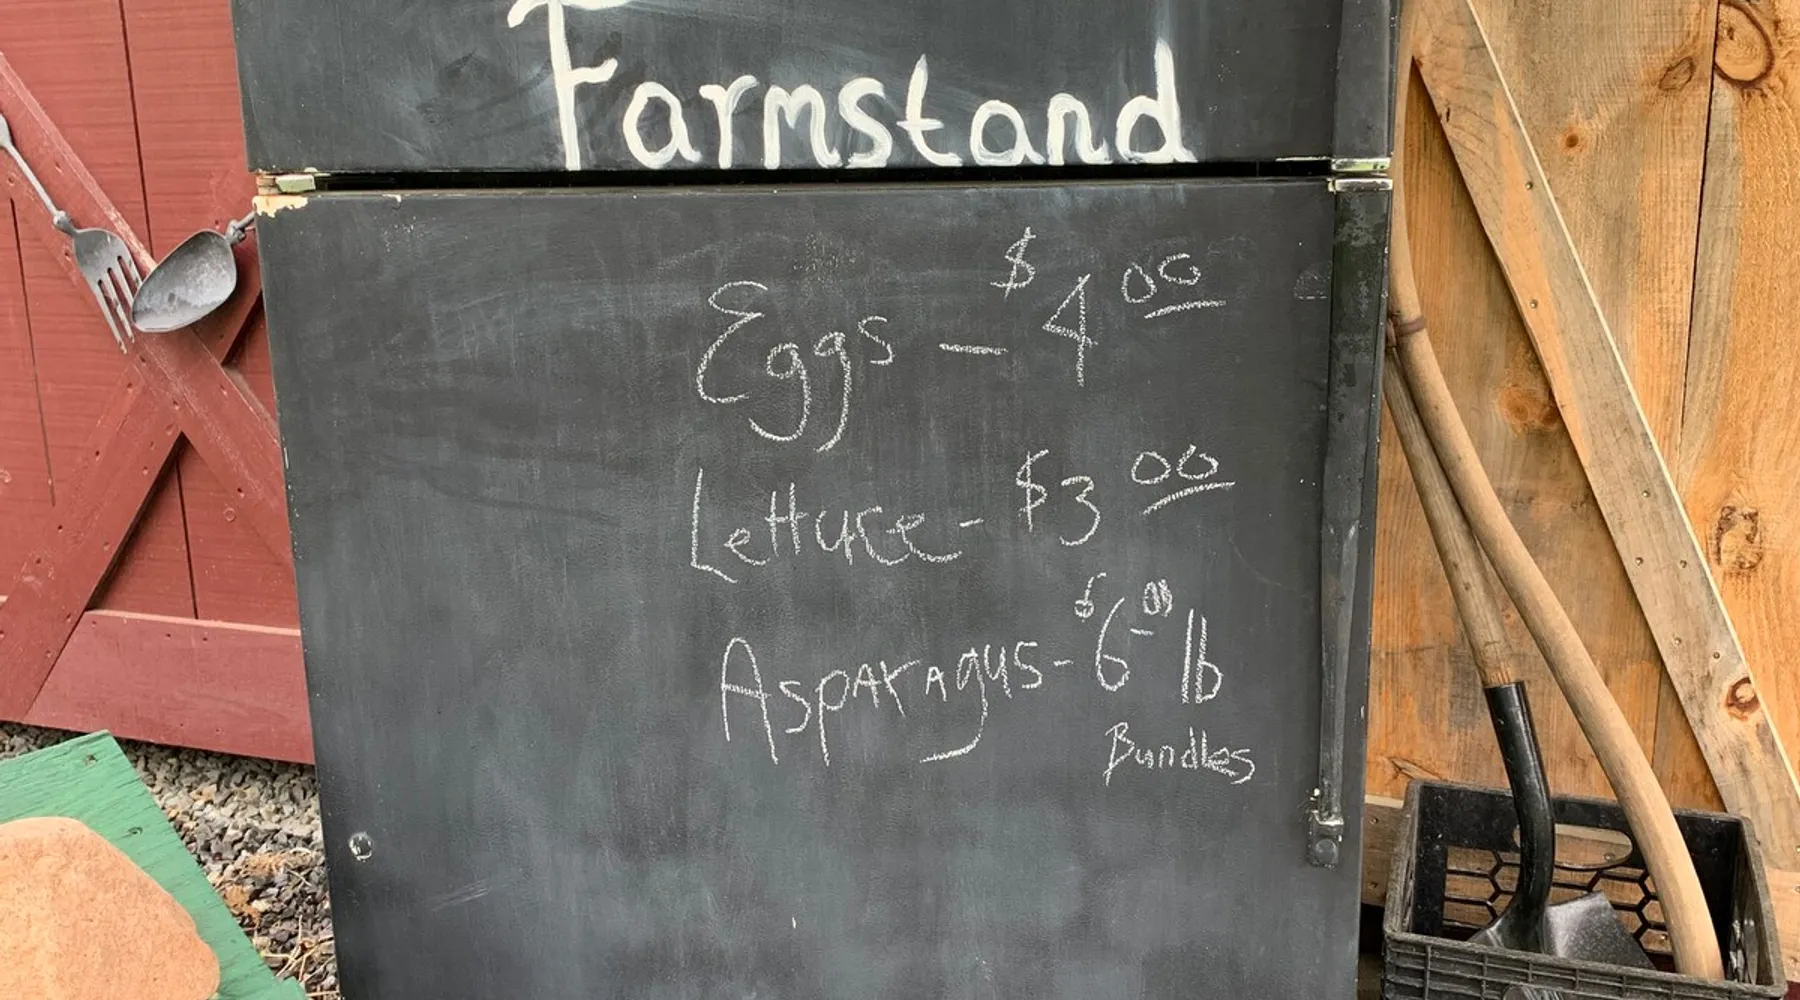 Farmstand
Eggs - $4.00
Lettuce - $3.00
Asparagus - $6.00 lb
Bundles